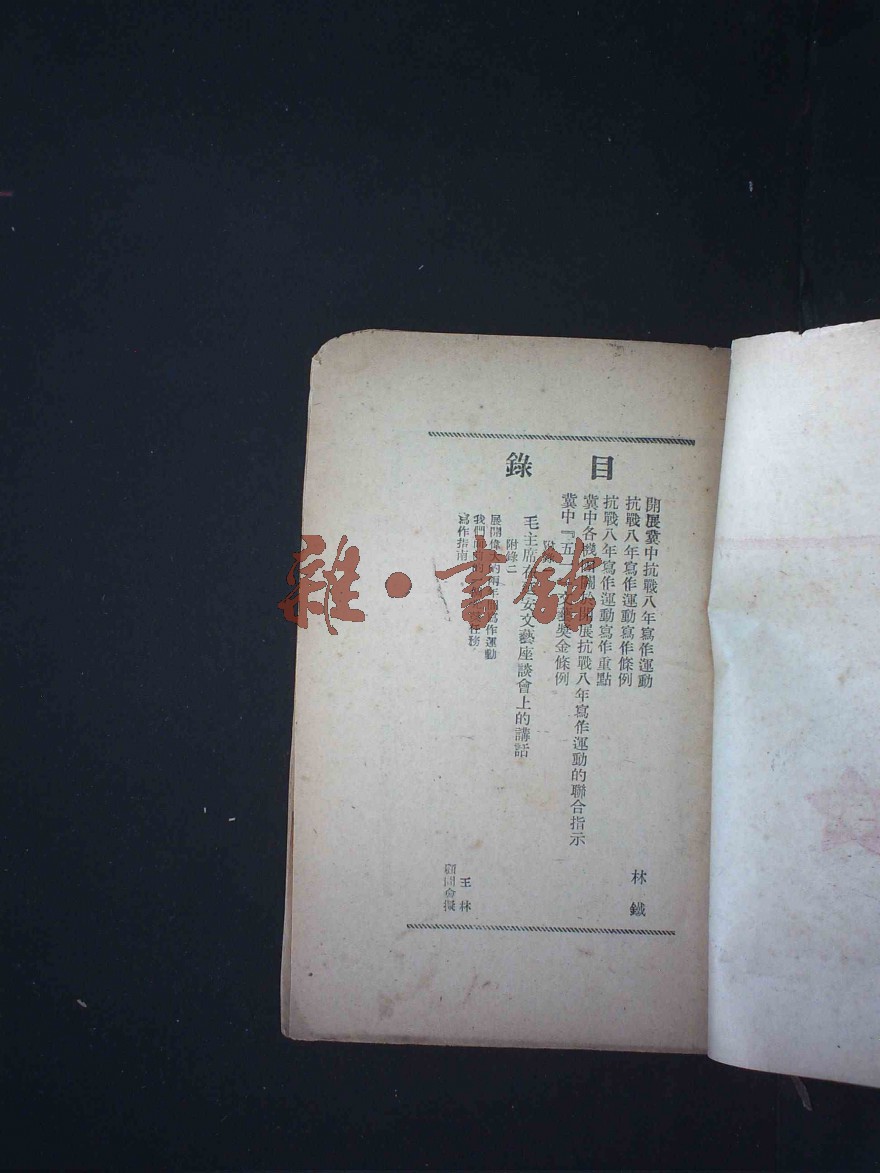 目錄
開展冀中抗戰八年寫作運動 林鐵
抗戰八年寫作運動寫作條例
抗戰八年寫作運動寫作重點
冀中各機關關於開展抗戰八年寫作運動的聯合指示
冀中『五 文藝獎金條例
附錄
毛主席在延安文藝座談會上的講話
附錄二
展開偉大的 年 寫作運動
我們 任務 王林
寫作指南 顧問會擬
雜·書館